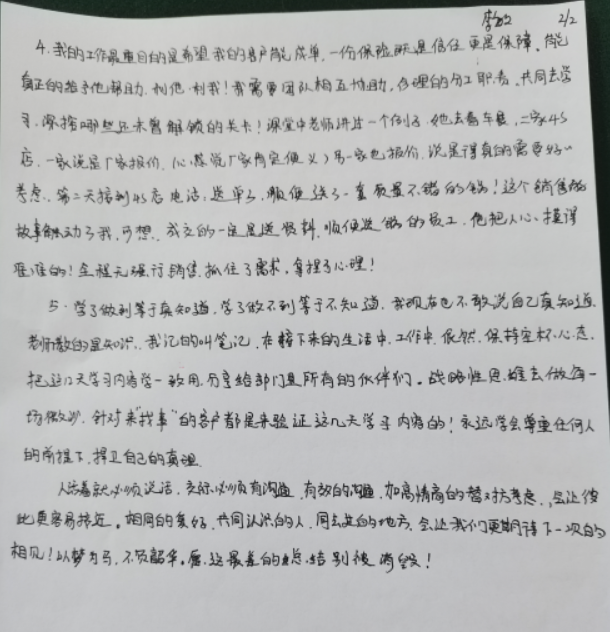 2/2
4. 我的工作最重目的是希望我的客户能成单,一份保险既是信任更是保障,能
真正的给予他帮助,利他利我!我需要团队相互协助,合理的分工职责,共同去学
习,深挖哪些还未曾解锁的关卡!课堂中老师讲过一个例子,她去看车展,二家4S
店,一家说是厂家报价,(心想说厂家肯定便义)另一家也报价,说是得真的需要好好
考虑,第二天接到4S店电话,送单了,顺便送了一套质量不错的锅!这个销售的
故事触动了我,可想,成交的一定是送资料,顺便送锅的员工,他把人心摸得
很准的!全程无强行销售,抓住了需求,拿捏了心理!
5. 学了做到等于真知道,学了做不到等于不知道,我现在也不敢说自己真知道,
老师教的是知识,我记的叫笔记,在接下来的生活中,工作中,依然,保持空杯心态,
把这几天学习内容学一致用,分享给部门里所有的伙伴们。战略性思维去做每一
场微沙,针对来"找事"的客户都是来验证这几天学习内容的!永远学会尊重任何人
的前提下,捍卫自己的真理
人活着就必须说话,交际必须有沟通,有效的沟通,加高情商的替对方考虑,会让彼
此更容易接近。相同的爱好,共同认识的人,同去过的地方,会让我们更期待下一次的
相见!以梦为马,不负韶华。愿,这最差的点,结别后消毁!